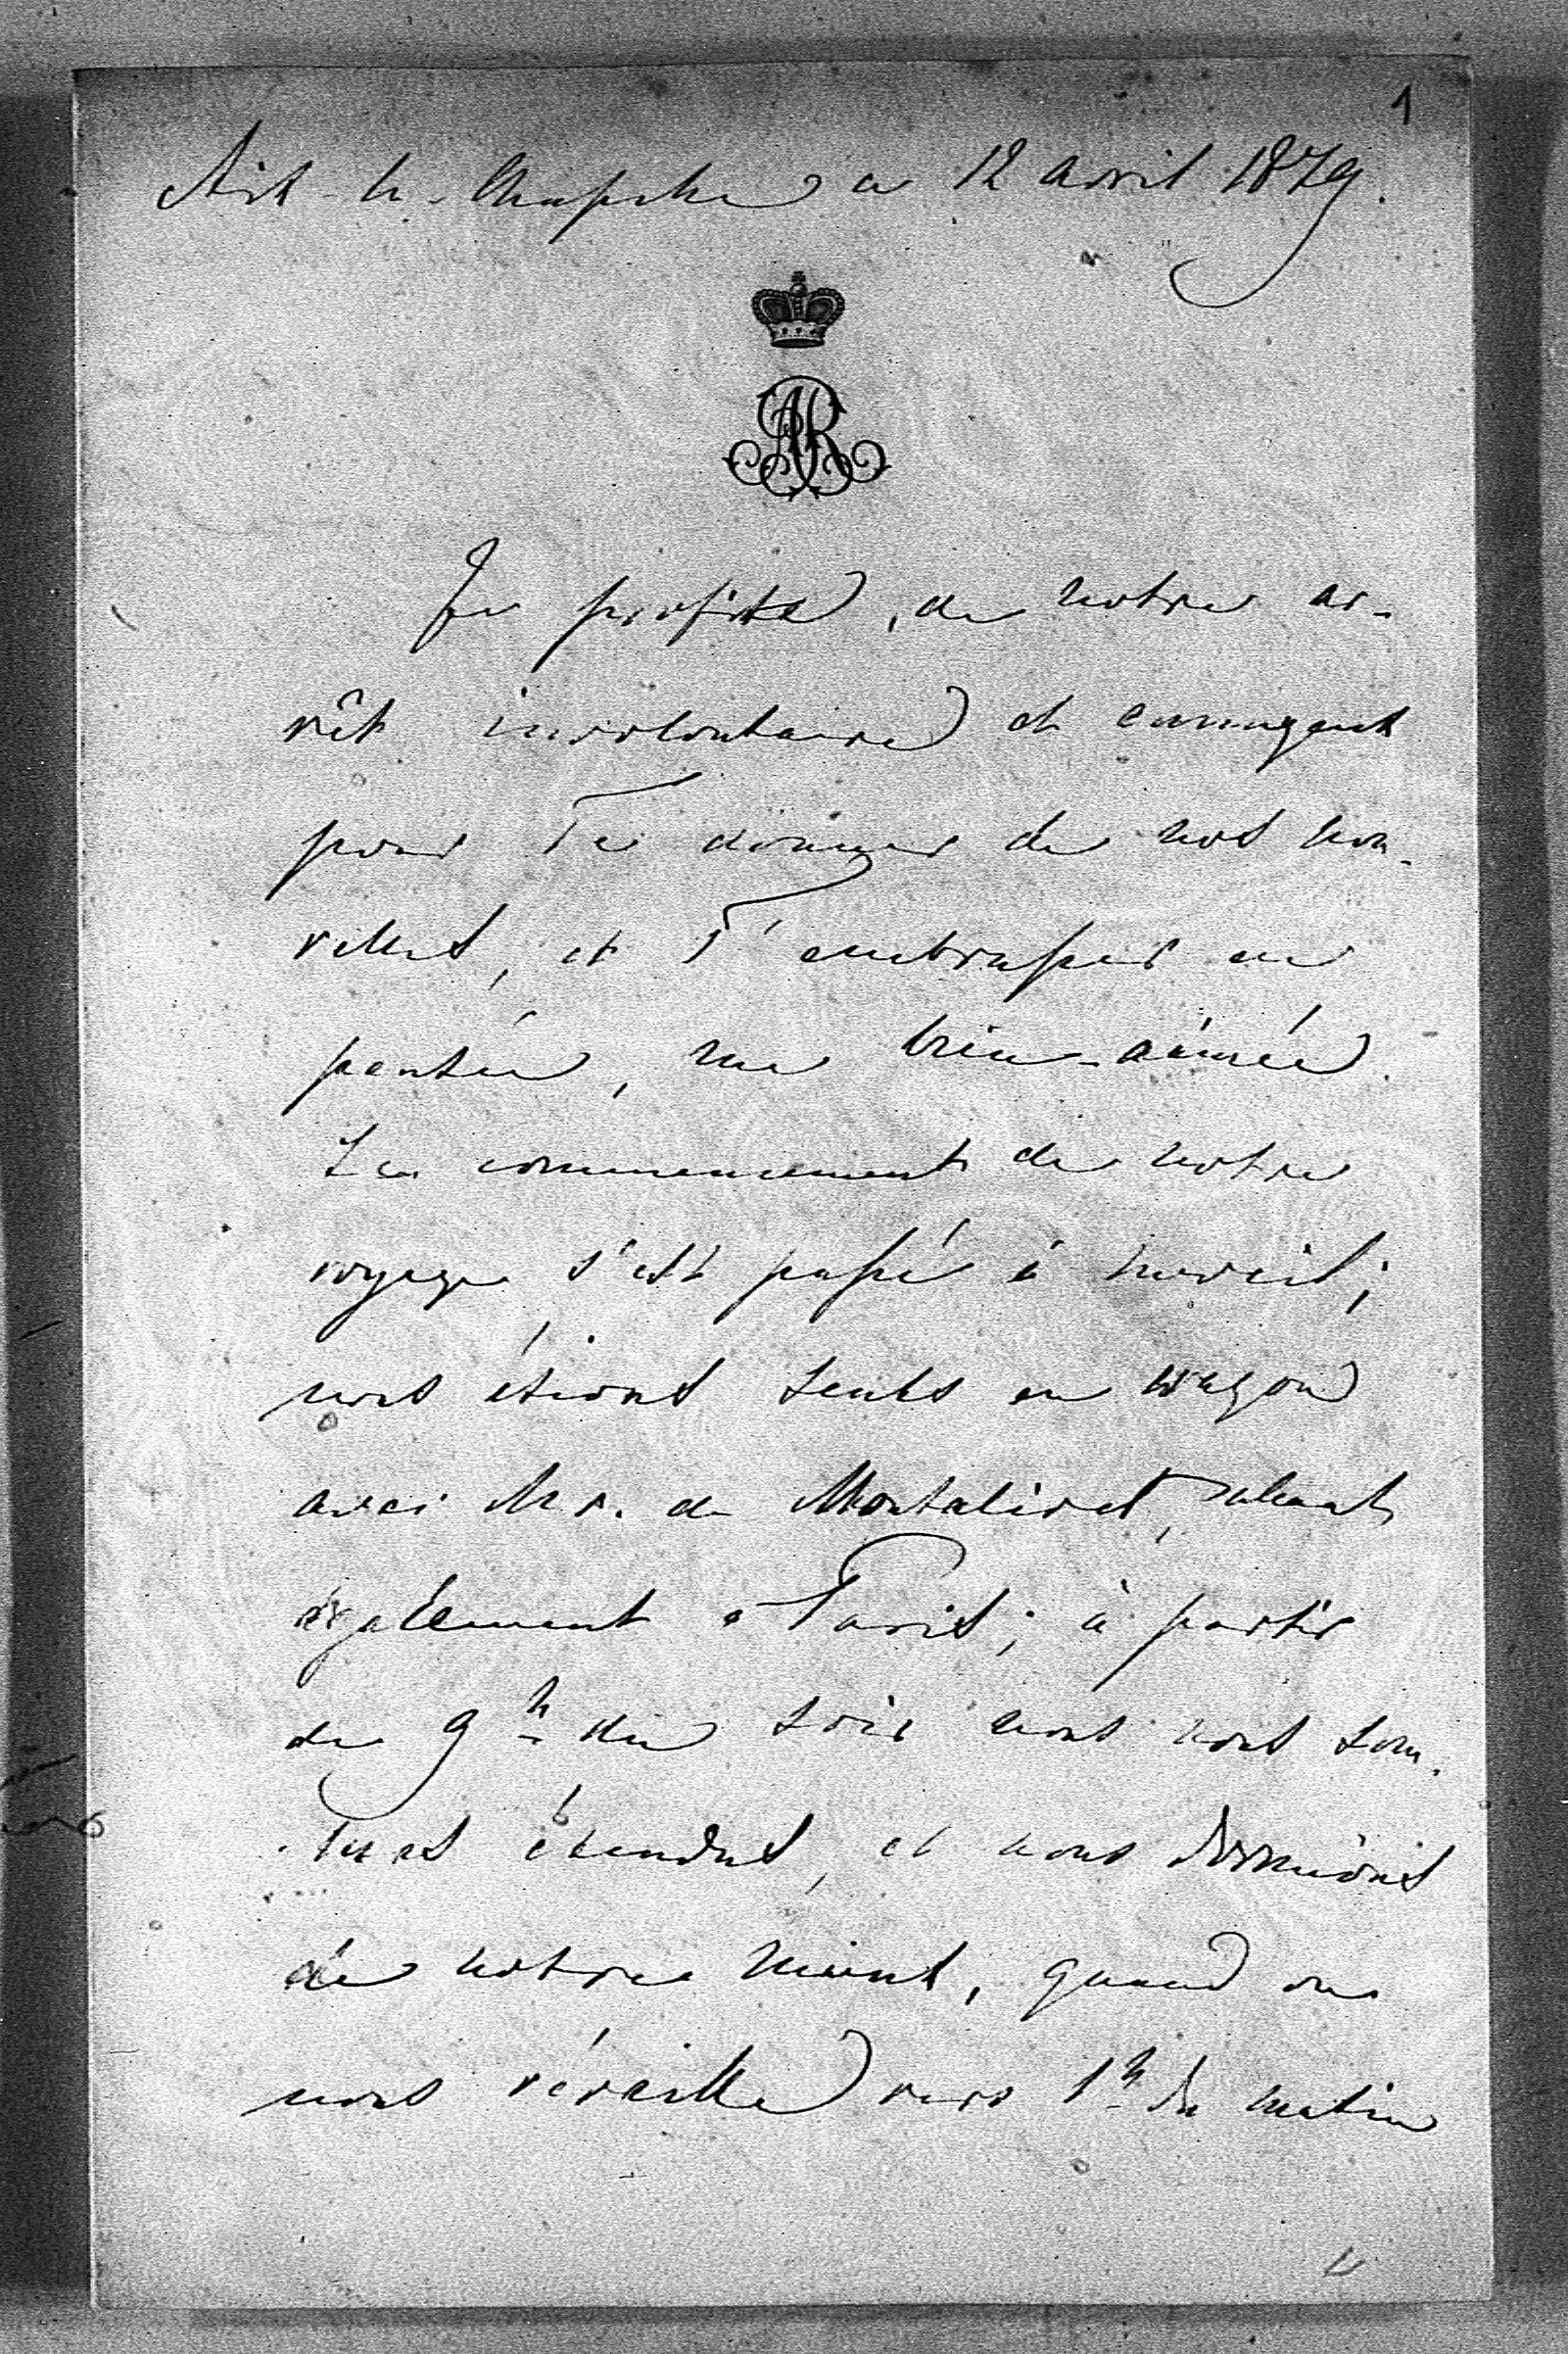 1
Aix-la-Chapelle ce 12 avril 1879.
AR
Je profite, de notre ar-
rêt involontaire et ennuyant
pour Te donner de nos nou-
velles, et T'embrasser en
pensée, ma bien-aimée.
Le commencement de notre
voyage s'est passé à merveil;
nous étions seuls en wagon
avec Mr. de Montalivet, allant
également à Paris; à partir
de 9h du soir nous nous som-
mes étendus, et nous dormions
de notre mieux, quand on
nous réveille vers 1h du matin